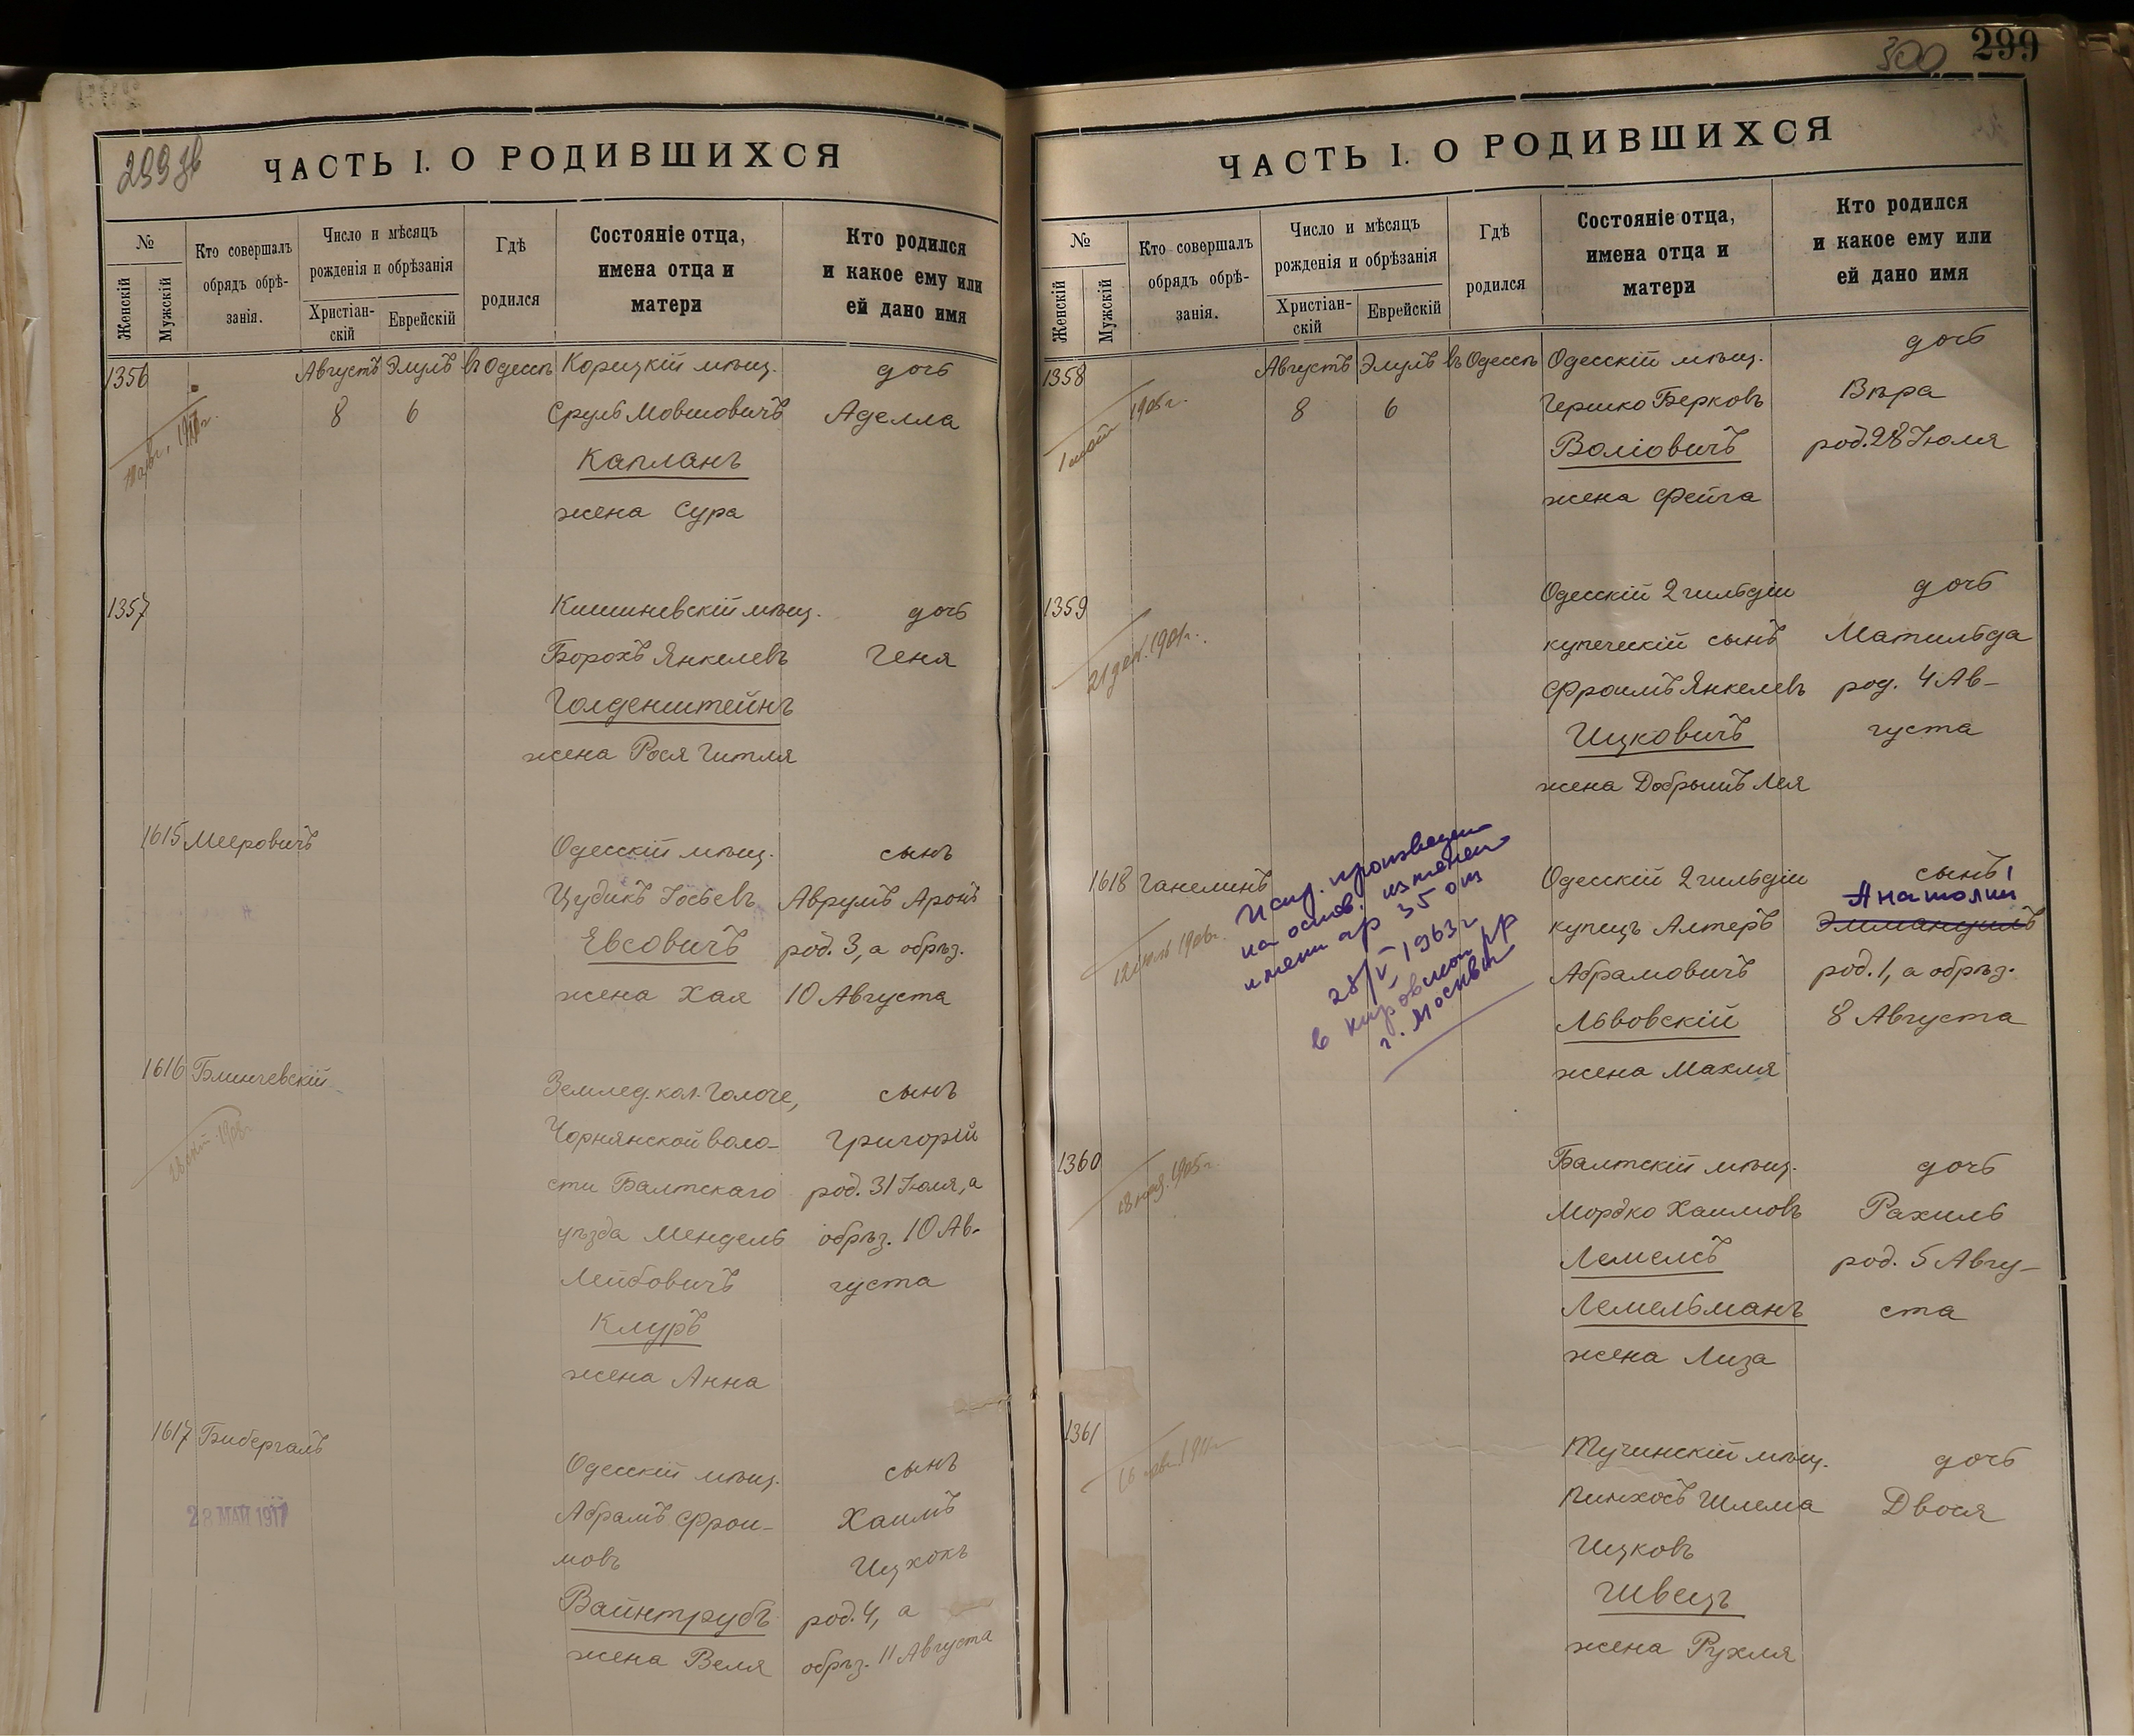 299 зв
ЧАСТЬ I. О РОДИВШИХСЯ
№
Женскій
Мужскій
Кто совершалъ
обрядъ обрѣ-
занія.
Число и мѣсяцъ
рожденія и обрѣзанія
Христіан-
скій
Еврейскій
Гдѣ
родился
Состояніе отца,
имена отца и
матери
Кто родился
и какое ему или
ей дано имя
1356 Августъ Элулъ въ Одессѣ Корицкій мѣщ. дочь
8 6 Сруль Мовшовичъ Аделла
1917г.
Капланъ
жена Сура
1357 Кишиневскій мѣщ. дочь
Борохъ Янкелевъ Геня
Голденштейнъ
жена Рося Гитля
1615 Мееровичъ Одесскій мѣщ. сынъ
Цудикъ Іосьевъ Аврумъ Аронъ
Евсовичъ род. 3, а обрѣз.
жена Хая 10 Августа
1616 Блинчевскій Землед. кол. Голоче, сынъ
Чорнянской воло- Григорій
сти Балтскаго род. 31 Іюля, а
уѣзда Мендель обрѣз. 10 Ав-
Лейбовичъ густа
Клуръ
жена Анна
1617 Бибергалъ Одесскій мѣщ. сынъ
28 МАЙ 1917
Абрамъ Фрои- Хаимъ
мовъ Ицхокъ
Вайнтрубъ род. 4, а
жена Веля обрѣз. 11 Августа
300 299
ЧАСТЬ I. О РОДИВШИХСЯ
№
Женскій
Мужскій
Кто совершалъ
обрядъ обрѣ-
занія.
Число и мѣсяцъ
рожденія и обрѣзанія
Христіан-
скій
Еврейскій
Гдѣ
родился
Состояніе отца,
имена отца и
матери
Кто родился
и какое ему или
ей дано имя
1358 Августъ Элулъ въ Одессѣ Одесскій мѣщ. дочь
1905г.
8 6 Гершко Берковъ Вѣра
Воліовичъ род. 28 Іюля
жена Фейга
1359 Одесскій 2 гильдіи дочь
21 дек. 1901г.
купеческій сынъ Матильда
Фроимъ Янкелевъ род. 4 Ав-
Ицковичъ густа
жена Добрышъ Лея
1618 Ганелинъ Одесскій 2 гильдіи сынъ
Анатолий
купецъ Алтеръ Эммануилъ
Абрамовичъ род. 1, а обрѣз.
Львовскій 8 Августа
жена Махля
Испр. произведен
на основ. изменен
имени ар 35 от
28/V 1963г
в кировском рр
г. Москвы
1360 Балтскій мѣщ. дочь
1905г.
Мордко Хаимовъ Рахиль
Лемелсъ род. 5 Авгу-
Лемельманъ ста
жена Лиза
1361 Тучинскій мѣщ. дочь
1911г
Пинхосъ Шлема Двося
Ицковъ
Швецъ
жена Рухля